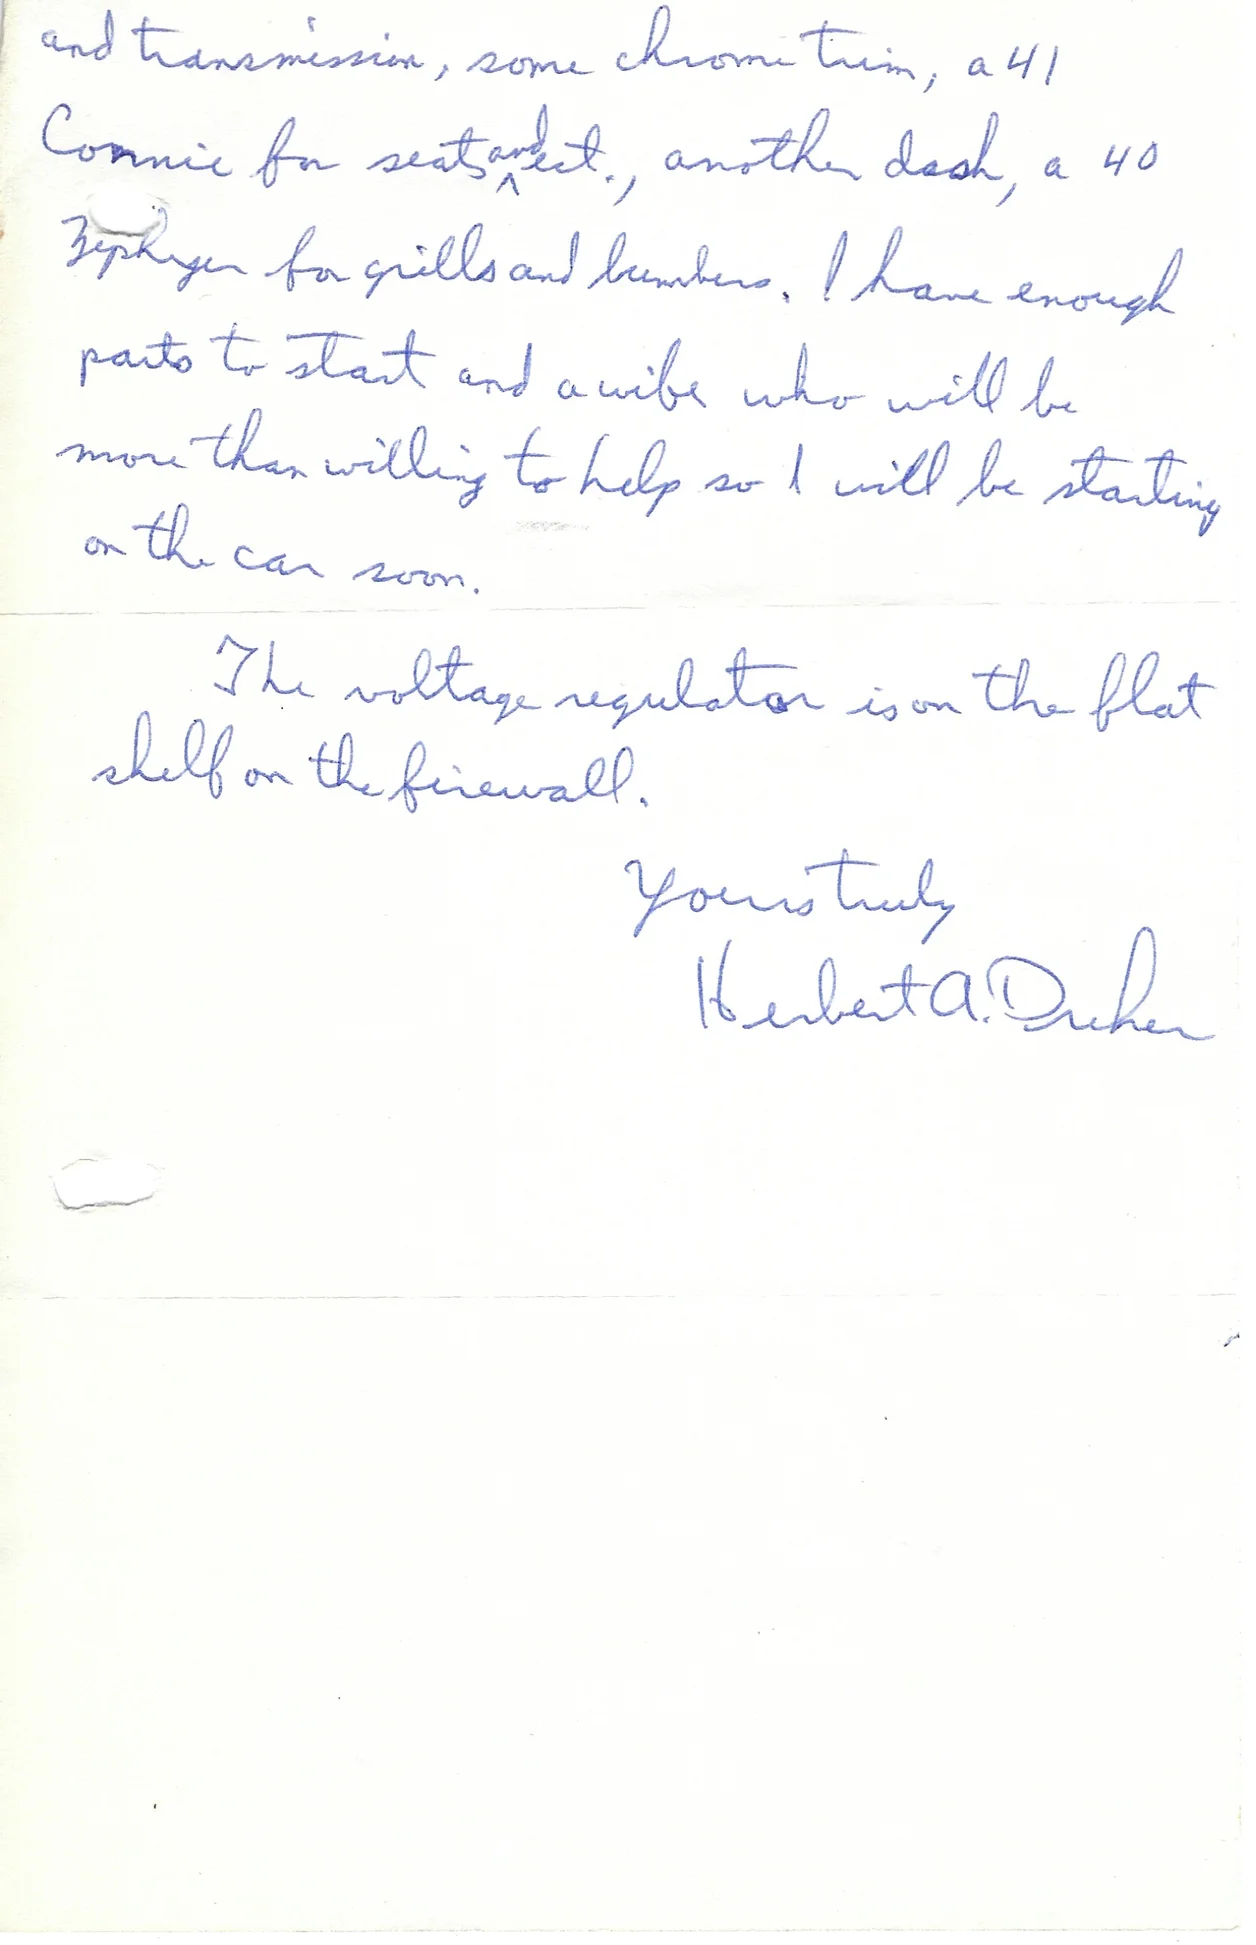 and transmission, some chrome trim, a 41
Connie for seats and ect., another dash, a 40
Zephyer for grills and bumbers. I have enough
parts to start and a wife who will be
more than willing to help so I will be starting
on the car soon.
The voltage regulator is on the flat
shelf on the firewall.
Yours truly
Herbert A. Dreher